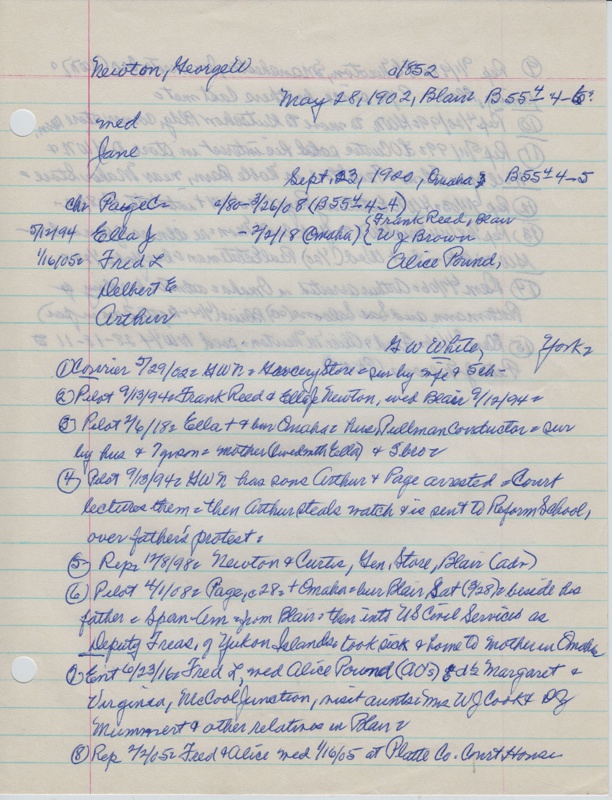 Newton, George W a/852
May 28, 1902, Blair B55 4-6?
med
Jane
Sept. 23, 1900, Omaha B55 4-5
chr Paige C a/80-3/26/08 (B55 4-4)
5/12/94 Ella J - 2/2/18 (Omaha) { Frank Reed, Blair
W J Brown
1/16/05 = Fred L Alice Pound,
Delbert E
Arthur
G W White, York
① Courier 5/29/02 = GWN = Grocery Store = sur by wife & 5ch-
② Pilot 9/13/94 = Frank Reed & Ella J Newton, wed Blair 9/12/94 =
③ Pilot 2/6/18 = Ella + & bur Omaha = hus Pullman Conductor = sur
by hus & 7 yr son = mother (lived with Ella) & 3 bro =
④ Pilot 9/13/94 = GWN has sons Arthur & Page arrested = Court
lectures them = then Arthur steals watch & is sent to Reform School,
over father's protest =
⑤ Rep 12/8/98 = Newton & Curtis, Gen. Store, Blair (adv)
⑥ Pilot 4/1/08 = Page, c 28 = + Omaha = bur Blair, Sat (3/28) = beside his
father = Span-Am = from Blair = then into US Civil Services as
Deputy Treas, of Yukon Islands = took sick & home to mother in Omaha
⑦ Ent 6/23/16 = Fred L, med Alice Pound (AO's) & ds Margaret &
Virginia, McCool Junction, visit aunts Mrs WJ Cook & DZ
Mummert & other relatives in Blair =
⑧ Rep 2/2/05 = Fred & Alice med 1/16/05 at Platte Co. Court House